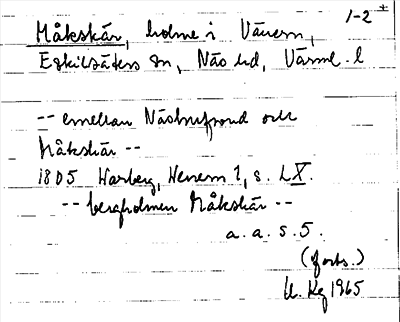 1-2
Måkskär, holme i Vänern,
Eskilsäters sn, Näs hd, Värml. l
-- emellan Näshufvond och
Måkskär --
1805 Warberg, Wenern 1, s. LX.
-- bergholmen Måkskär --
a. a. s. 5.
(forts.)
1965